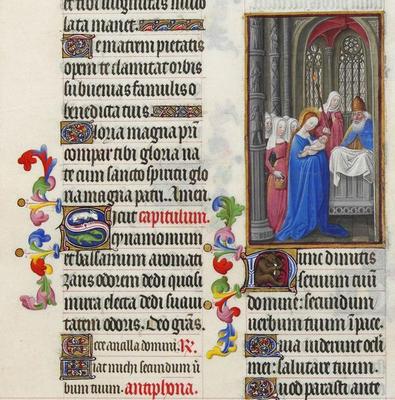 lata manet.
Te matrem pietatis
opem te clamitat orbis
subuenias famulis o
benedicta tuis.
Gloria magna pr̄i
compar tibi gloria na
te cum sancto spiritu glo
ria magna patri. Amen.
Sicut capitulum.
cynamomum
et balsamum aromati
zans odorem dedi quasi
mirra electa dedi suaui
tatem odoris. Deo gr̄as.
Ecce ancilla domini. R.
Fiat michi secundum ū
bum tuum. antiphona.
Nunc dimitis
seruum tuū
domine: secundum
uerbum tuum ī pace.
Quia uiderunt ocli
mei: salutare tuum.
Quod parasti ante